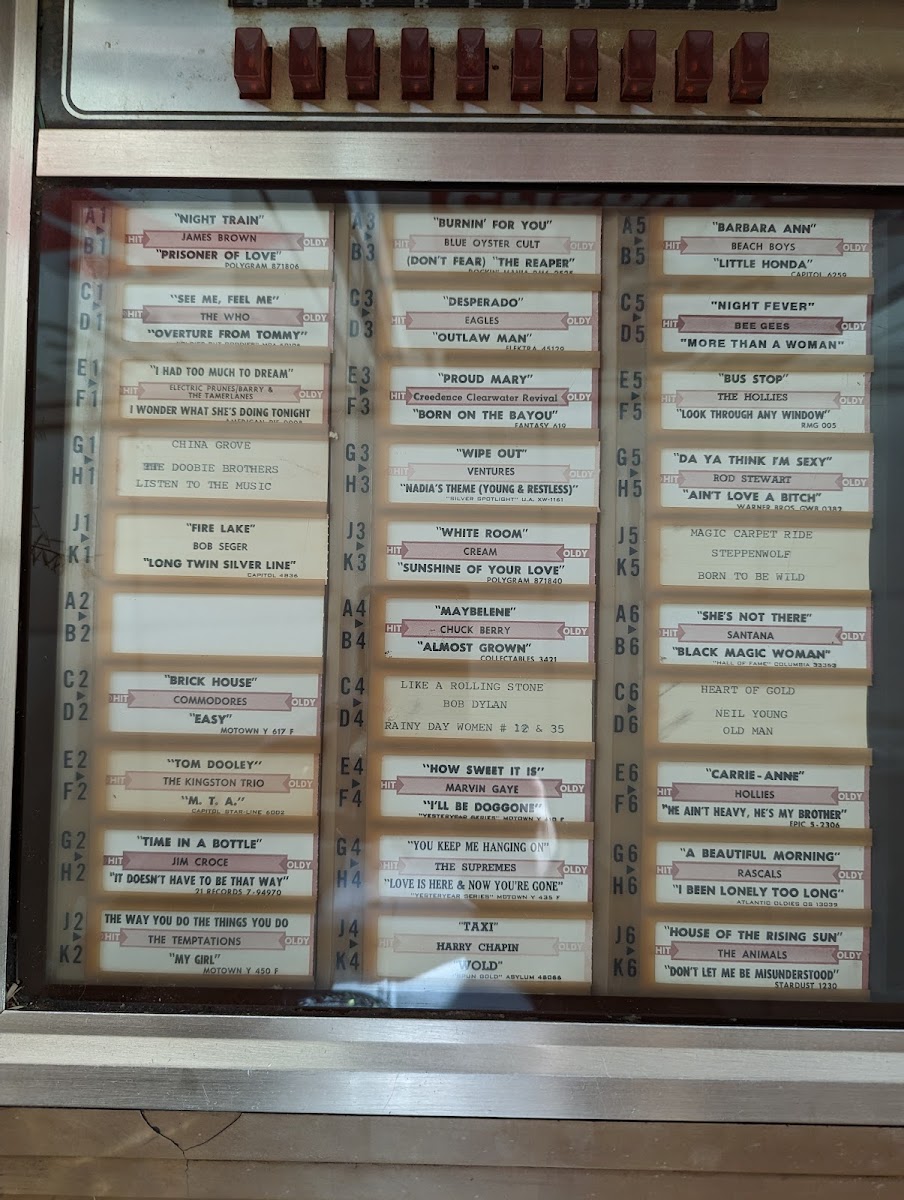 A1
B1
"NIGHT TRAIN"
HIT JAMES BROWN OLDY
"PRISONER OF LOVE"
POLYGRAM 871806
C1
D1
"SEE ME, FEEL ME"
HIT THE WHO OLDY
"OVERTURE FROM TOMMY"
E1
F1
"I HAD TOO MUCH TO DREAM"
HIT ELECTRIC PRUNES/BARRY & OLDY
THE TAMERLANES
I WONDER WHAT SHE'S DOING TONIGHT
G1
H1
CHINA GROVE
THE DOOBIE BROTHERS
LISTEN TO THE MUSIC
J1
K1
"FIRE LAKE"
BOB SEGER
"LONG TWIN SILVER LINE"
CAPITOL 4836
A2
B2
C2
D2
"BRICK HOUSE"
HIT COMMODORES OLDY
"EASY"
MOTOWN Y 617 F
E2
F2
"TOM DOOLEY"
HIT THE KINGSTON TRIO OLDY
"M. T. A."
CAPITOL STAR-LINE 6002
G2
H2
"TIME IN A BOTTLE"
HIT JIM CROCE OLDY
"IT DOESN'T HAVE TO BE THAT WAY"
21 RECORDS 7-94970
J2
K2
THE WAY YOU DO THE THINGS YOU DO
HIT THE TEMPTATIONS OLDY
"MY GIRL"
MOTOWN Y 450 F
A3
B3
"BURNIN' FOR YOU"
HIT BLUE OYSTER CULT OLDY
(DON'T FEAR) "THE REAPER"
C3
D3
"DESPERADO"
HIT EAGLES OLDY
"OUTLAW MAN"
ELEKTRA 45129
E3
F3
"PROUD MARY"
HIT Creedence Clearwater Revival OLDY
"BORN ON THE BAYOU"
FANTASY 619
G3
H3
"WIPE OUT"
HIT VENTURES OLDY
"NADIA'S THEME (YOUNG & RESTLESS)"
"SILVER SPOTLIGHT" U.A. XW-1161
J3
K3
"WHITE ROOM"
HIT CREAM OLDY
"SUNSHINE OF YOUR LOVE"
POLYGRAM 871840
A4
B4
"MAYBELENE"
HIT CHUCK BERRY OLDY
"ALMOST GROWN"
COLLECTABLES 3421
C4
D4
LIKE A ROLLING STONE
BOB DYLAN
RAINY DAY WOMEN # 12 & 35
E4
F4
"HOW SWEET IT IS"
HIT MARVIN GAYE OLDY
"I'LL BE DOGGONE"
"YESTERYEAR SERIES" MOTOWN
G4
H4
"YOU KEEP ME HANGING ON"
HIT THE SUPREMES OLDY
"LOVE IS HERE & NOW YOU'RE GONE"
"YESTERYEAR SERIES" MOTOWN Y 435 F
J4
K4
"TAXI"
HIT HARRY CHAPIN OLDY
"WOLD"
ASYLUM 45066
A5
B5
"BARBARA ANN"
HIT BEACH BOYS OLDY
"LITTLE HONDA"
CAPITOL 6259
C5
D5
"NIGHT FEVER"
HIT BEE GEES OLDY
"MORE THAN A WOMAN"
E5
F5
"BUS STOP"
HIT THE HOLLIES OLDY
"LOOK THROUGH ANY WINDOW"
RMG 005
G5
H5
"DA YA THINK I'M SEXY"
HIT ROD STEWART OLDY
"AIN'T LOVE A BITCH"
WARNER BROS. GWB 0382
J5
K5
MAGIC CARPET RIDE
STEPPENWOLF
BORN TO BE WILD
A6
B6
"SHE'S NOT THERE"
HIT SANTANA OLDY
"BLACK MAGIC WOMAN"
"HALL OF FAME" COLUMBIA
C6
D6
HEART OF GOLD
NEIL YOUNG
OLD MAN
E6
F6
"CARRIE-ANNE"
HIT HOLLIES OLDY
"HE AIN'T HEAVY, HE'S MY BROTHER"
EPIC 5-2306
G6
H6
"A BEAUTIFUL MORNING"
HIT RASCALS OLDY
"I BEEN LONELY TOO LONG"
ATLANTIC OLDIES OS 13039
J6
K6
"HOUSE OF THE RISING SUN"
HIT THE ANIMALS OLDY
"DON'T LET ME BE MISUNDERSTOOD"
STARDUST 1230